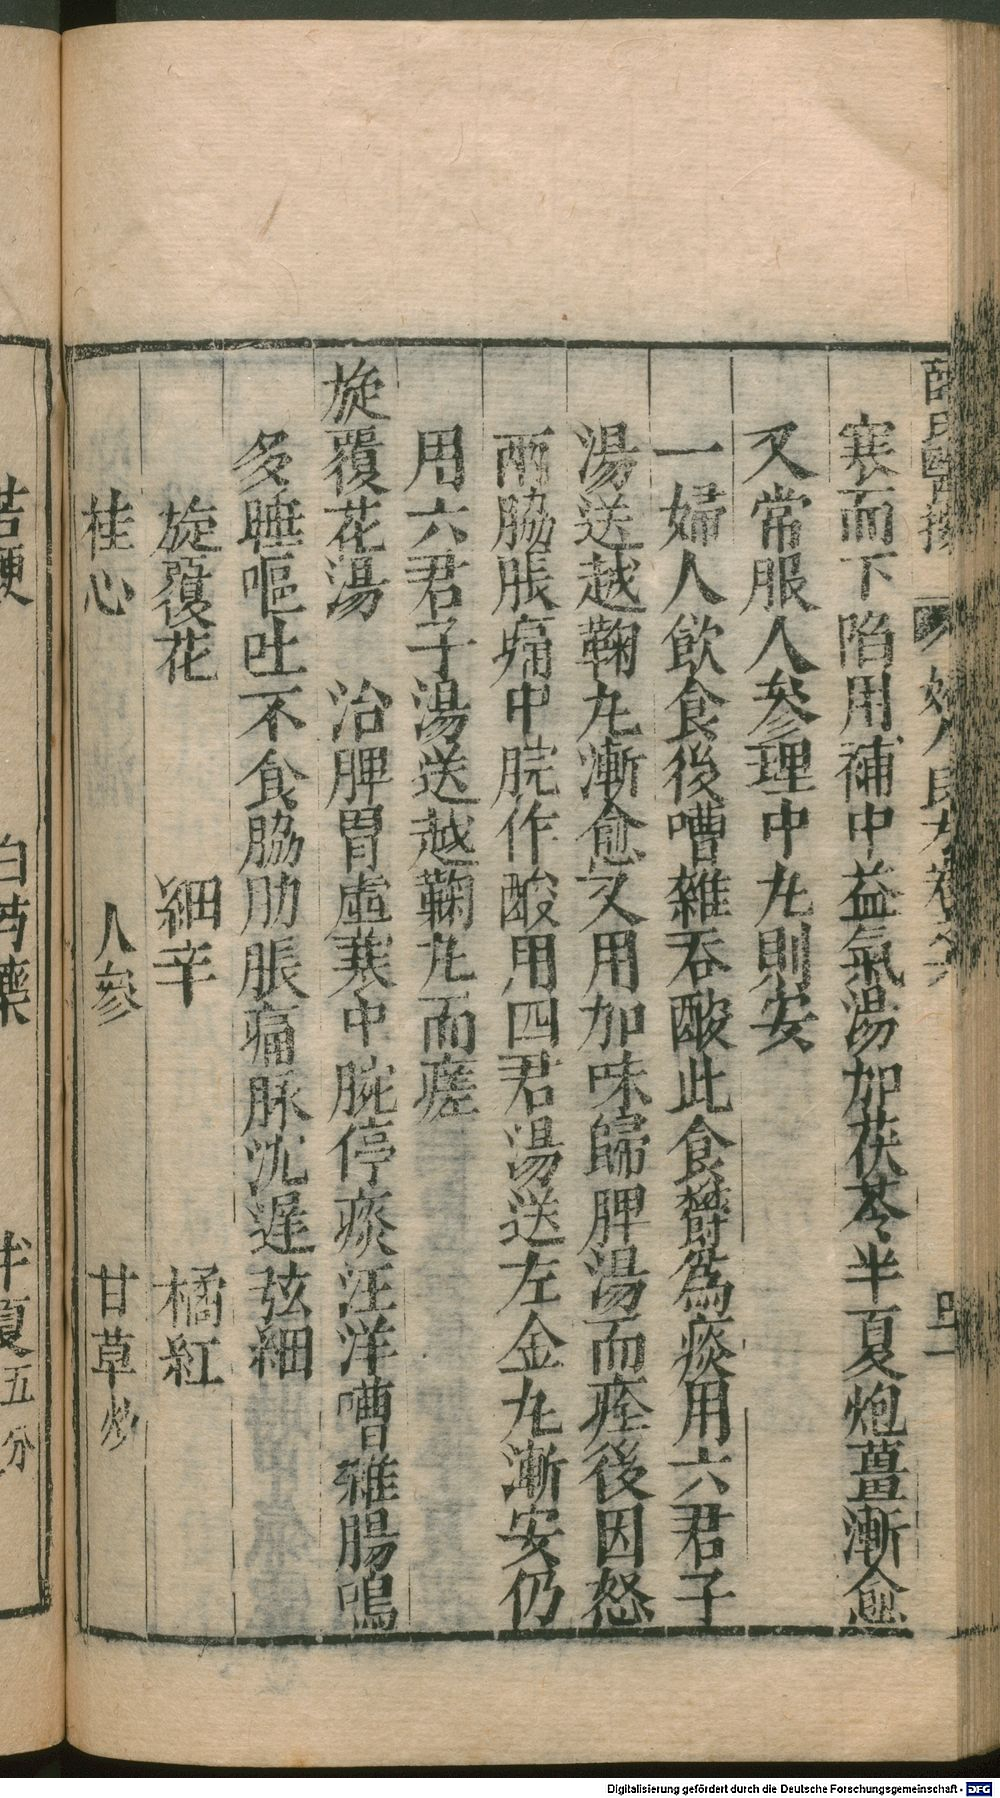 薛氏醫按 婦人良方卷六
寒而下陷用補中益氣湯加茯苓半夏炮薑漸愈
又常服人參理中丸則安
一婦人飲食後嘈雜吞酸此食欝為痰用六君子
湯送越鞠丸漸愈又用加味歸脾湯而痊後因怒
兩脇脹痛中脘作酸用四君湯送左金丸漸安仍
用六君子湯送越鞠丸而瘥
旋覆花湯 治脾胃虛寒中脘停痰汪洋嘈雜腸鳴
多睡嘔吐不食脇肋脹痛脉沈遲弦細
旋覆花 細辛 橘紅
桂心 人參 甘草炒
桔梗 白芍藥 半夏五分
Digitalisierung gefördert durch die Deutsche Forschungsgemeinschaft - DFG